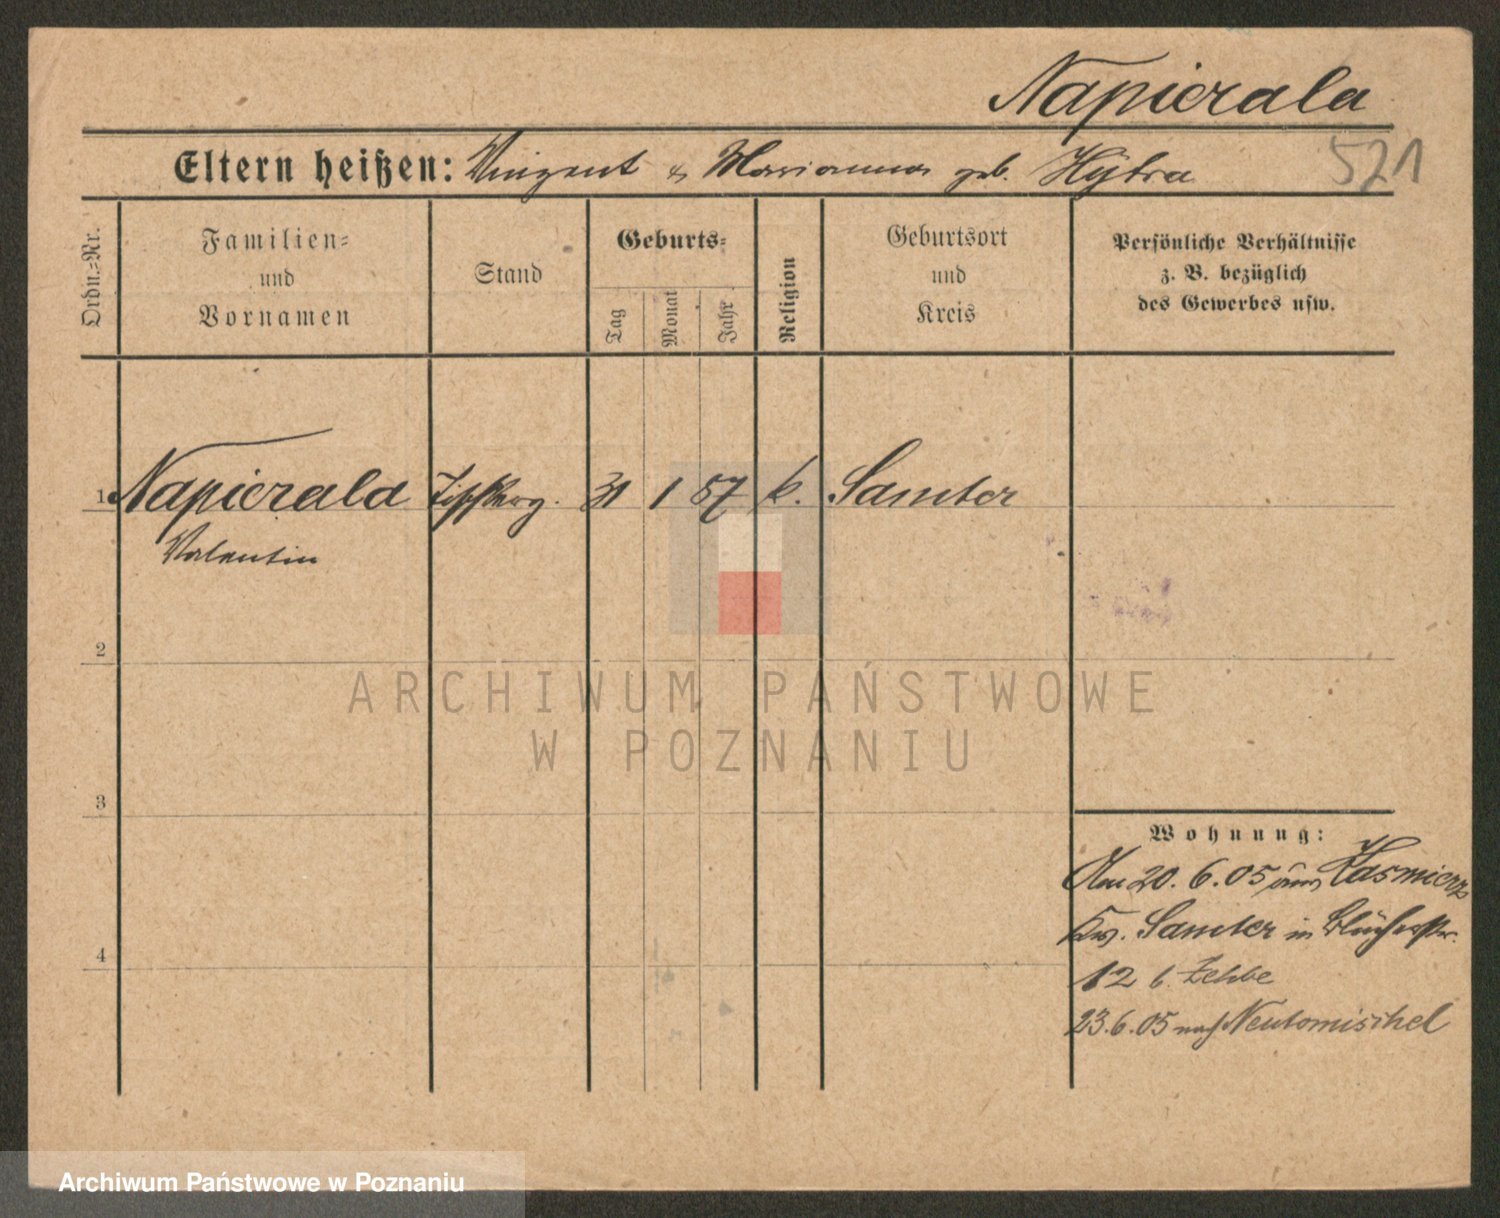 Napierala
521
Eltern heißen: Vinzent & Marianna geb. Hybra
Ordn.=Nr.
Familien=
und
Vornamen
Stand
Geburts=
Tag
Monat
Jahr
Religion
Geburtsort
und
Kreis
Persönliche Verhältnisse
z. B. bezüglich
des Gewerbes usw.
1 Napierala 31 1 57 k. Samter
Valentin
2
ARCHIWUM PAŃSTWOWE
W POZNANIU
3
Wohnung:
Am 20. 6. 05 aus Kasmierz
Krs. Samter in Blücherstr.
12 b. Zehbe
4
23. 6. 05 nach Neutomischel
Archiwum Państwowe w Poznaniu